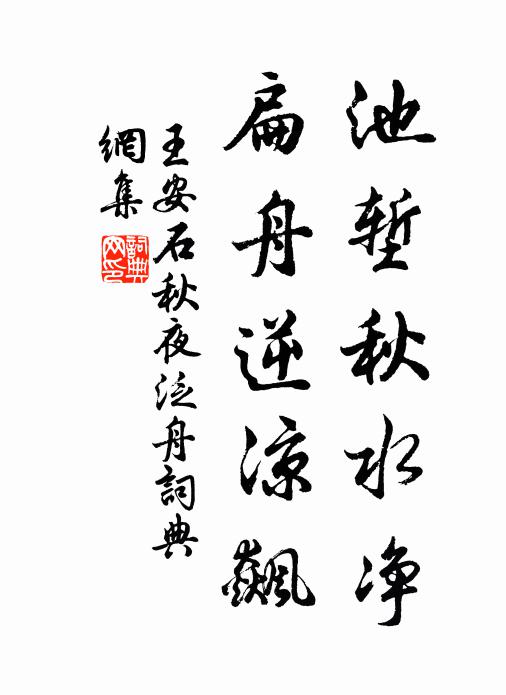 池塹秋水净
扁舟逆凉飆
王安石秋夜泛舟詞典
網集
詞典
网印